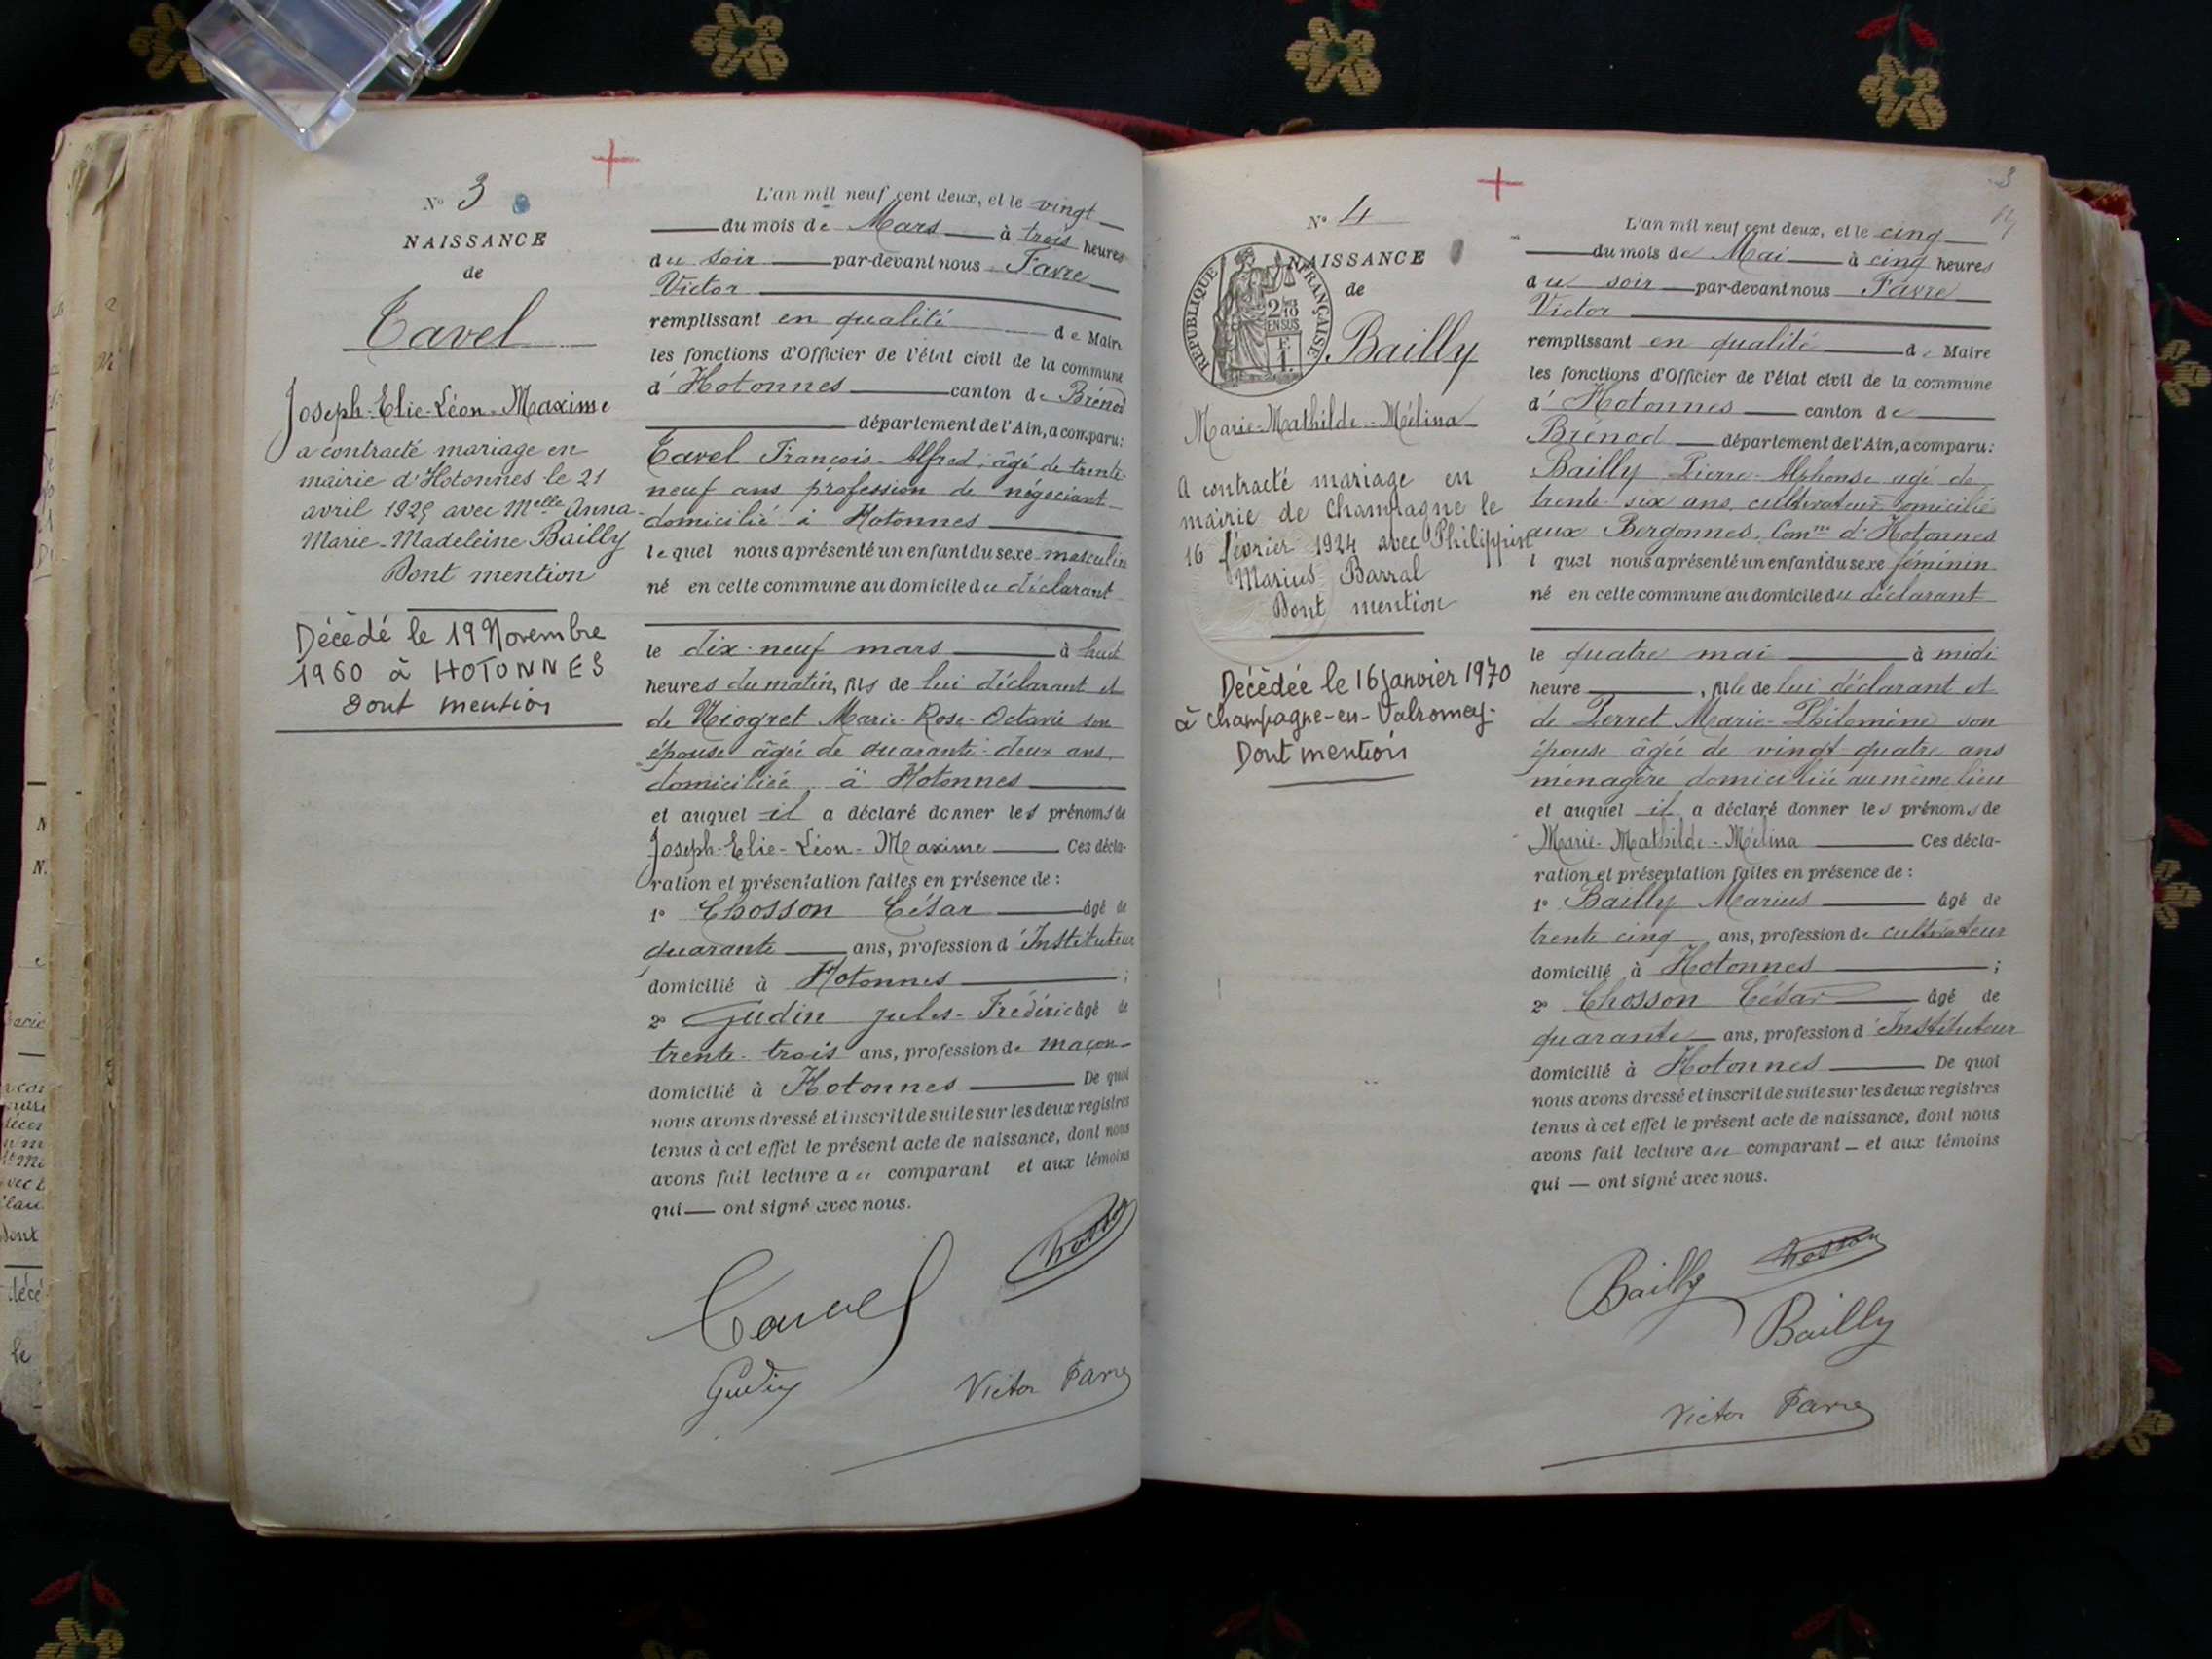 Nº 3
NAISSANCE
de
Tavel
Joseph-Elie-Léon-Maxime
a contracté mariage en
mairie d'Hotonnes le 21
avril 1925 avec Melle Anna-
Marie-Madeleine Bailly
Dont mention
Décédé le 19 Novembre
1960 à HOTONNES
Dont mention
L'an mil neuf cent deux, et le vingt
du mois de Mars à trois heures
du soir par-devant nous Favre
Victor
remplissant en qualité de Maire
les fonctions d'Officier de l'état civil de la commune
d'Hotonnes canton de Brénod
département de l'Ain, a comparu:
Tavel François-Alfred, âgé de trente-
neuf ans profession de négociant
domicilié à Hotonnes
lequel nous a présenté un enfant du sexe masculin
né en cette commune au domicile du déclarant
le dix-neuf mars à huit
heures du matin, fils de lui déclarant et
de Niogret Marie-Rose-Octavie son
épouse âgée de quarante-deux ans,
domiciliée à Hotonnes
et auquel il a déclaré donner les prénoms de
Joseph-Elie-Léon-Maxime Ces décla-
ration et présentation faites en présence de :
1º Chosson César âgé de
quarante ans, profession d'Instituteur
domicilié à Hotonnes ;
2º Gudin Jules-Frédéric âgé de
trente-trois ans, profession de maçon
domicilié à Hotonnes De quoi
nous avons dressé et inscrit de suite sur les deux registres
tenus à cet effet le présent acte de naissance, dont nous
avons fait lecture au comparant et aux témoins
qui ont signé avec nous.
Tavel Chosson
Gudin Victor Favre
3
Nº 4
NAISSANCE
de
RÉPUBLIQUE FRANÇAISE
2/10
EN SUS
Bailly
Marie-Mathilde-Mélina
A contracté mariage en
mairie de Champagne le
16 février 1924 avec Philippin
Marius Barral
Dont mention
Décédée le 16 Janvier 1970
à Champagne-en-Valromey.
Dont mention
L'an mil neuf cent deux, et le cinq
du mois de Mai à cinq heures
du soir par-devant nous Favre
Victor
remplissant en qualité de Maire
les fonctions d'Officier de l'état civil de la commune
d'Hotonnes canton de
Brénod département de l'Ain, a comparu:
Bailly Pierre-Alphonse agé de
trente-six ans, cultivateur domicilié
aux Bergonnes, Comne d'Hotonnes
l quel nous a présenté un enfant du sexe féminin
né en cette commune au domicile du déclarant
le quatre mai à midi
heure , fille de lui déclarant et
de Perret Marie-Philomène son
épouse âgée de vingt-quatre ans
ménagère domiciliée au même lieu
et auquel il a déclaré donner les prénoms de
Marie-Mathilde-Mélina Ces décla-
ration et présentation faites en présence de :
1º Bailly Marius âgé de
trente cinq ans, profession de cultivateur
domicilié à Hotonnes ;
2º Chosson César âgé de
quarante ans, profession d'Instituteur
domicilié à Hotonnes De quoi
nous avons dressé et inscrit de suite sur les deux registres
tenus à cet effet le présent acte de naissance, dont nous
avons fait lecture au comparant et aux témoins
qui ont signé avec nous.
Bailly Chosson
Bailly
Victor Favre